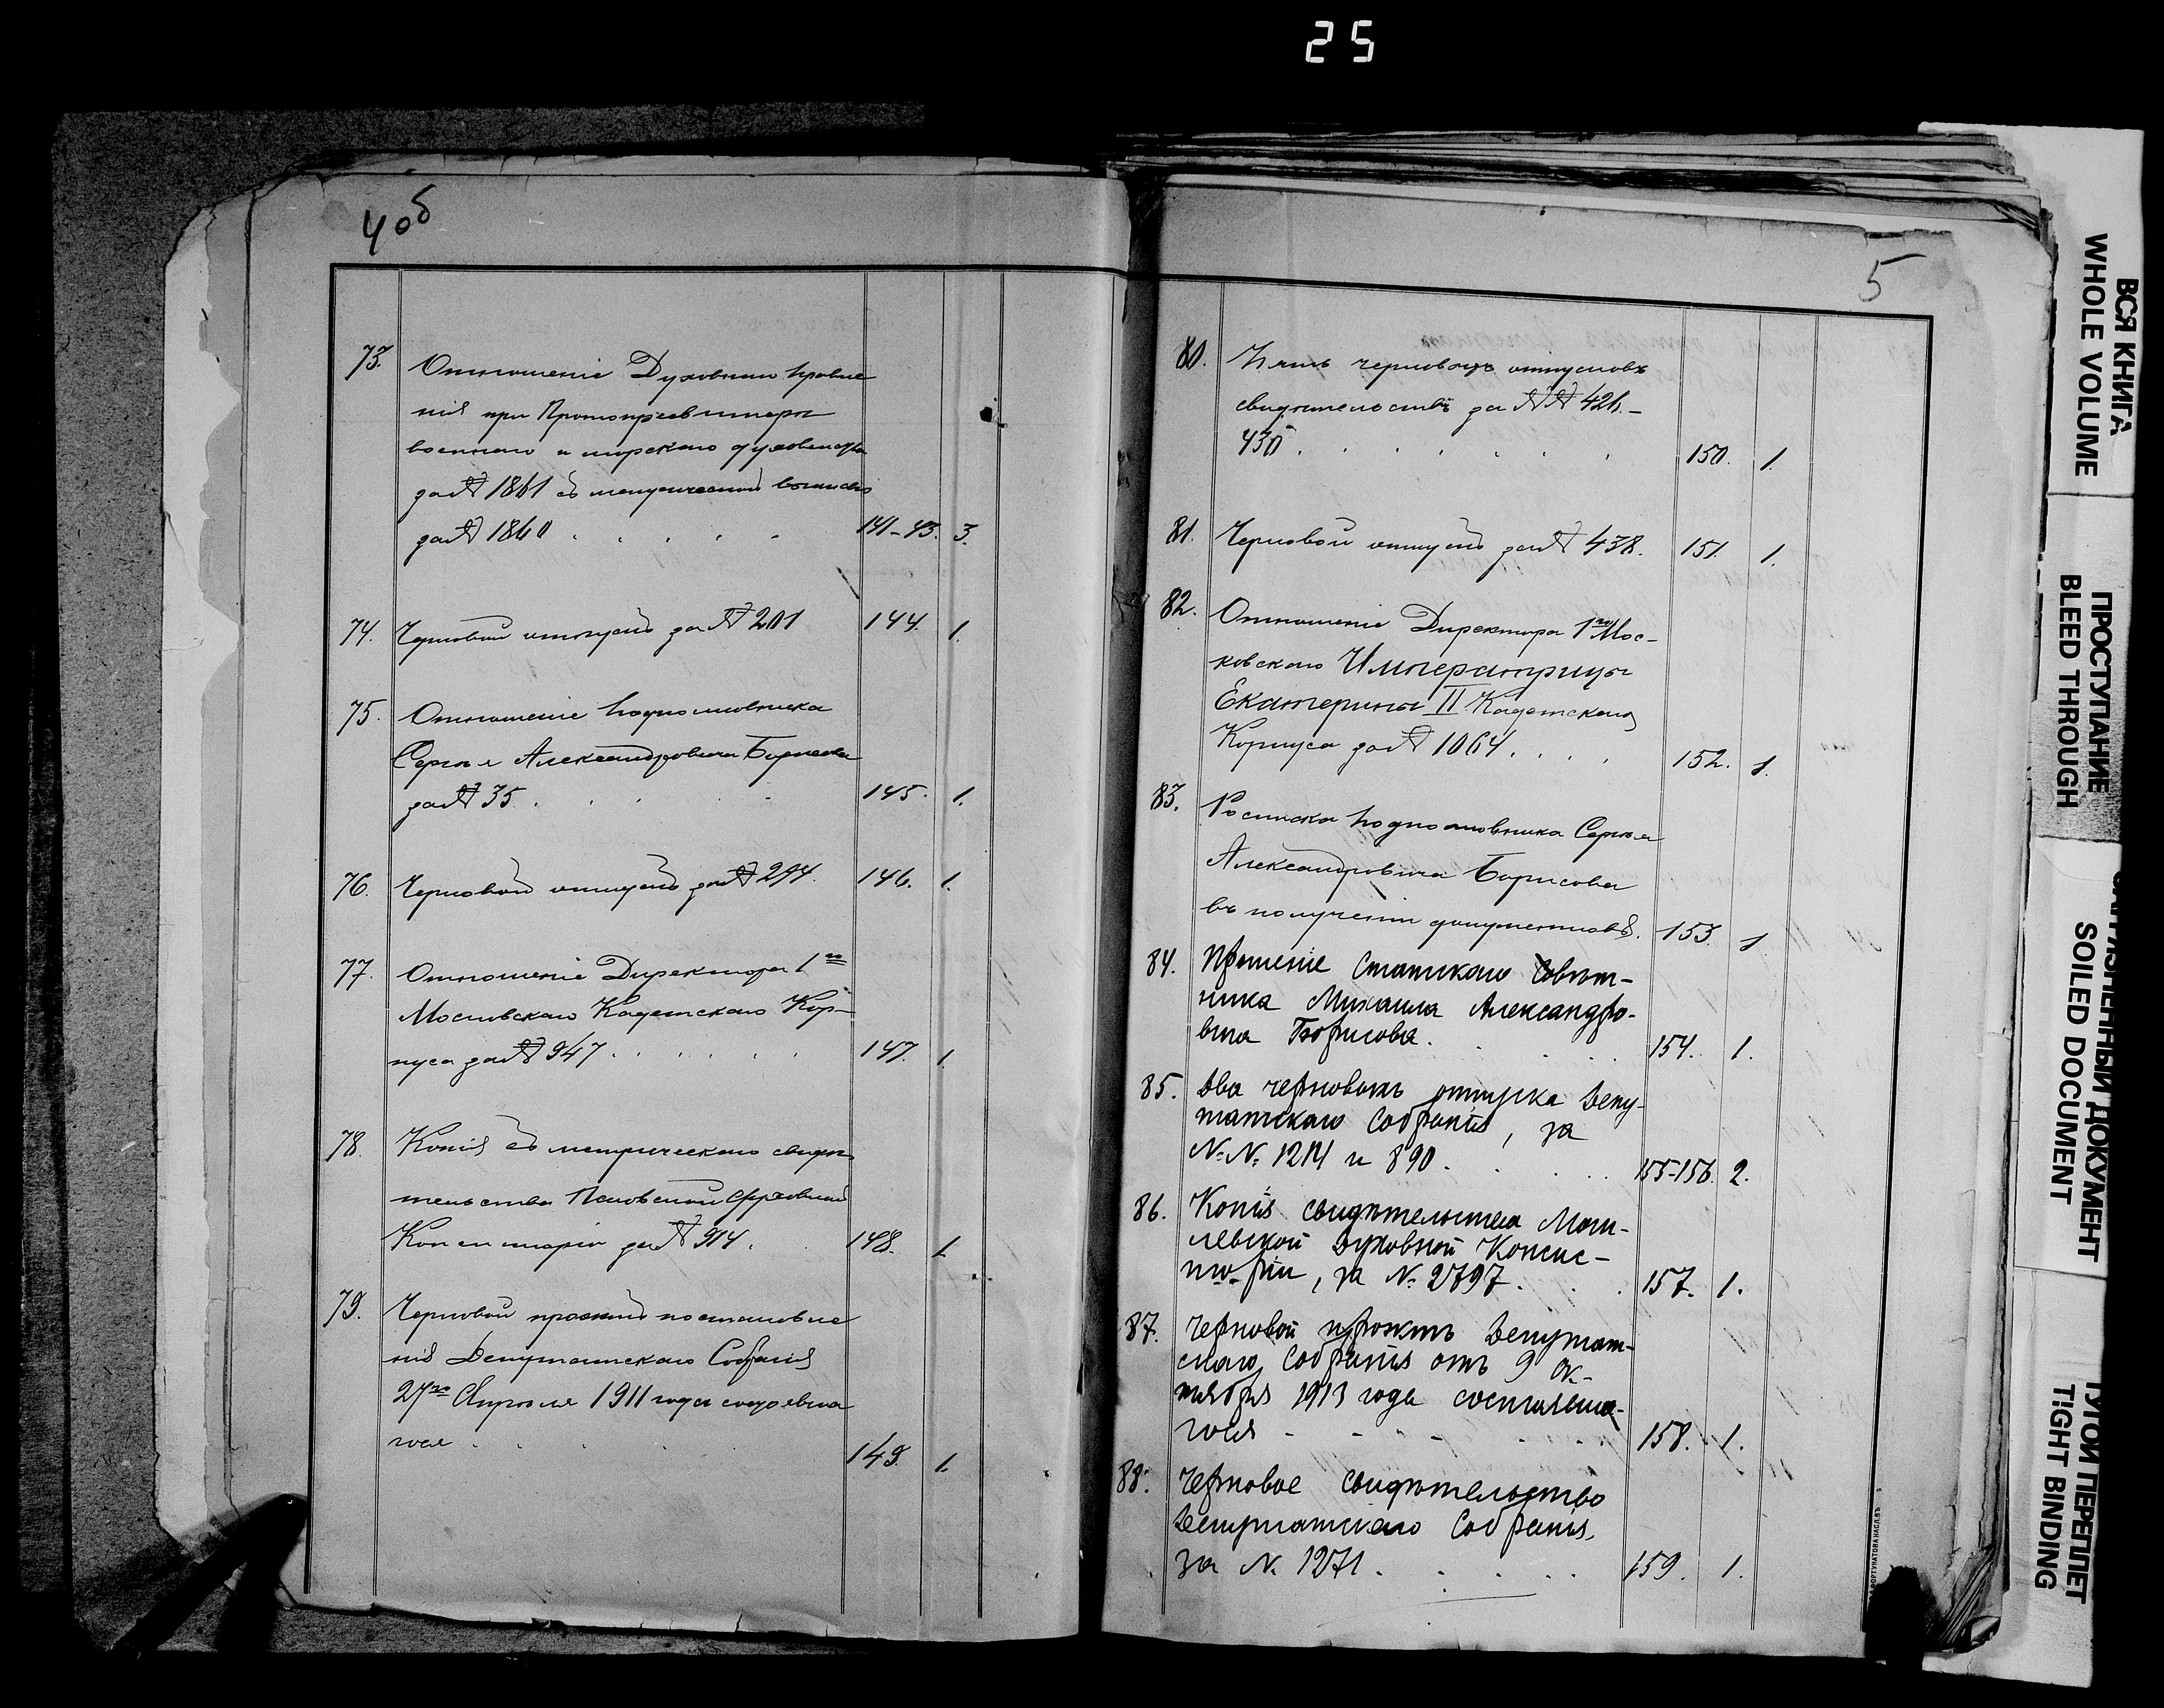 25
4 об
73. Отношеніе Духовнаго Правле
нія при Протопресвитерѣ
военнаго и морского духовенства
за № 1861 съ метрической выписью
за № 1860 . . . . . 141-43. 3.
74. Черновой отпускъ за № 201 144. 1.
75. Отношеніе Подполковника
Сергѣя Александровича Борисова
за № 35. . . . . 145. 1.
76. Черновой отпускъ за № 294. 146. 1.
77. Отношеніе Директора 1го
Московскаго Кадетскаго Кор-
пуса за № 947 . . . . . . 147. 1.
78. Копія съ метрическаго свидѣ
тельства Псковской Духовной
Консисторіи за № 914. . 148. 1.
79. Черновой проектъ постановле
нія Депутатскаго Собранія
27го Апрѣля 1911 года
. . . . 149. 1.
5
80. Пять черновыхъ отпусковъ
свидѣтельствъ за №№ 426.-
430. . . . . . . . 150. 1.
81. Черновой отпускъ за № 438. 151. 1.
82. Отношеніе Директора 1го Мос-
ковскаго Императрицы
Екатерины II Кадетскаго
Корпуса за № 1064. . . . 152. 1.
83. Росписка Подполковника Сергѣя
Александровича Борисова
въ полученіи документовъ. 153. 1
84. Прошеніе Статскаго Совѣт-
ника Михаила Александро-
вича Борисова. . . . . 154. 1.
85. Два черновыхъ отпуска Депу-
татскаго Собранія, за
№.№. 1214 и 890. . . . 155-156. 2.
86. Копія свидѣтельства Моги-
левской Духовной Консис-
торіи, за №. 2797. . . . 157. 1.
87. Черновой проектъ Депутат-
скаго Собранія отъ 9 Ок-
тября 1913 года состоявша-
гося - - - - . . . 158. 1.
88. Черновое свидѣтельство
Депутатскаго Собранія,
за №. 1271. . . . . 159. 1.
ВСЯ КНИГА
WHOLE VOLUME
ПРОСТУПАНИЕ
BLEED THROUGH
ЗАГРЯЗНЕННЫЙ ДОКУМЕНТ
SOILED DOCUMENT
ТУГОЙ ПЕРЕПЛЕТ
TIGHT BINDING